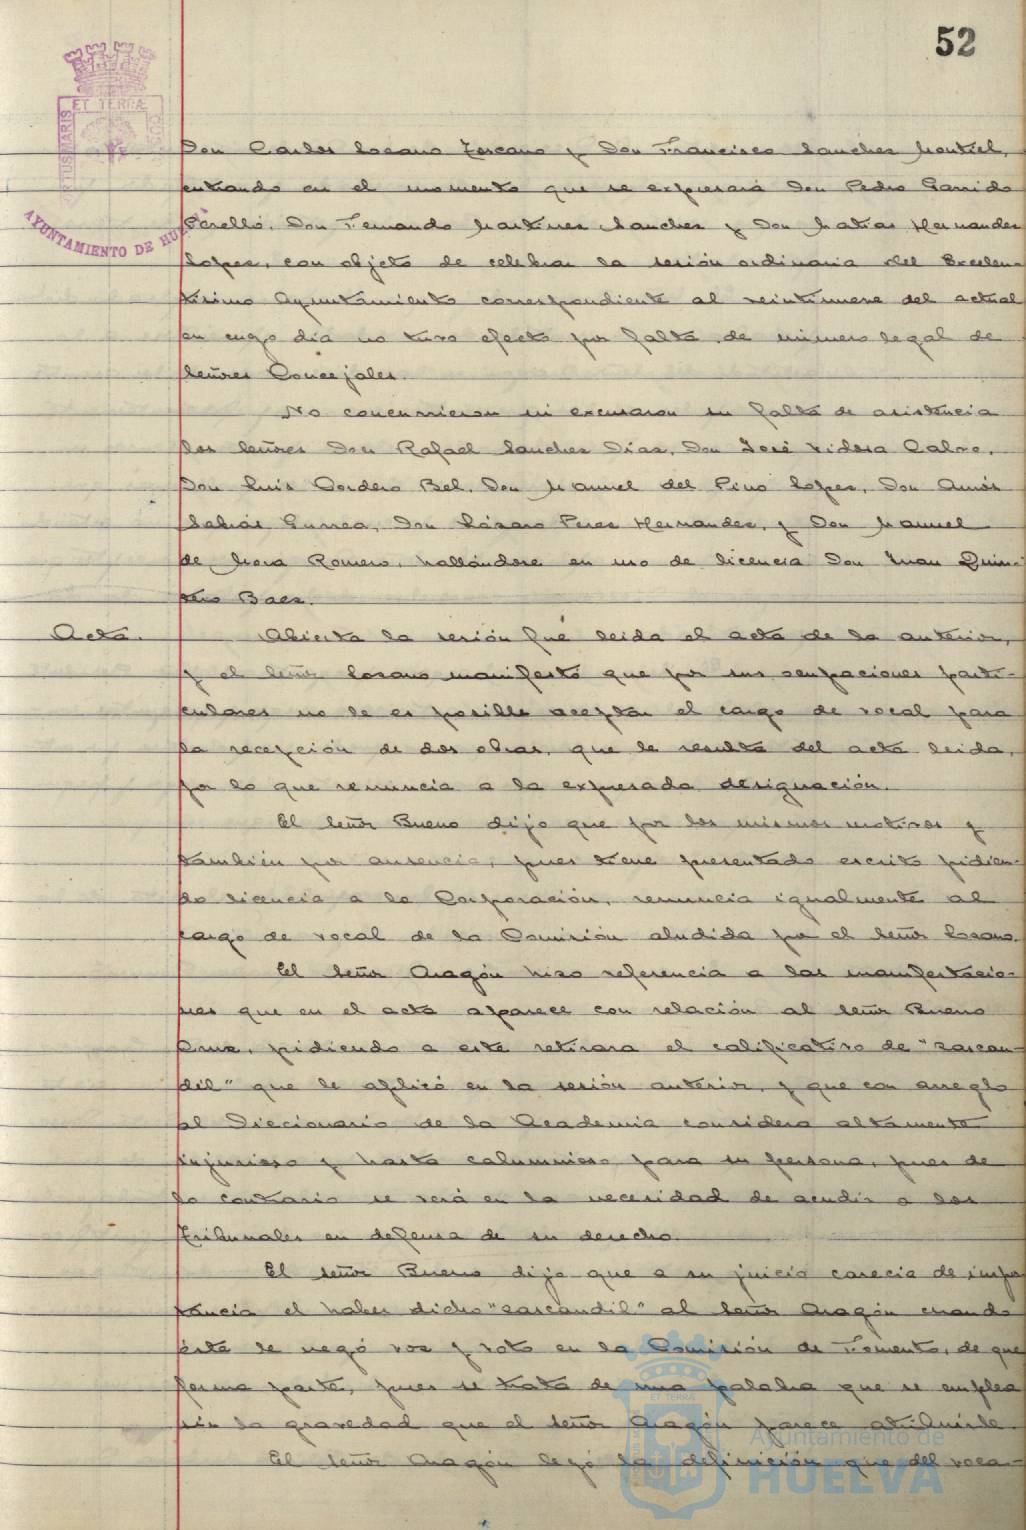 52
ET TERRÆ
PORTUS MARIS
CUSTODIA
AYUNTAMIENTO DE HUELVA
Don Carlos Lozano Toscano y Don Francisco Sanchez Montiel,
entrando en el momento que se expresará Don Pedro Garrido
Perelló, Don Fernando Martinez Sanchez y Don Matias Hernandez
Lopez, con objeto de celebrar la sesión ordinaria del Excelen-
tisimo Ayuntamiento correspondiente al veintinueve del actual
en cuyo dia no tuvo efecto por falta de número legal de
Señores Concejales.
No concurrieron ni excusaron su falta de asistencia
los Señores Don Rafael Sanchez Diaz, Don José Vidosa Calvo,
Don Luis Cordero Bel, Don Manuel del Pino Lopez, Don Amós
Sabrás Gurrea, Don Lázaro Perez Hernandez, y Don Manuel
de Mora Romero, hallándose en uso de licencia Don Juan Quin-
tero Baez.
Acta.
Abierta la sesión fué leida el acta de la anterior,
y el Señor Lozano manifestó que por sus ocupaciones parti-
culares no le es posible aceptar el cargo de vocal para
la recepción de dos obras, que le resulta del acta leida,
por lo que renuncia a la expresada designación.
El Señor Bueno dijo que por los mismos motivos y
también por ausencia, pues tiene presentado escrito pidien-
do licencia a la Corporación, renuncia igualmente al
cargo de vocal de la Comisión aludida por el Señor Lozano.
El Señor Aragón hizo referencia a las manifestacio-
nes que en el acta aparece con relación al Señor Bueno
Cruz, pidiendo a este retirara el calificativo de "zascan-
dil" que le aplicó en la sesión anterior, y que con arreglo
al Diccionario de la Academia considera altamente
injurioso y hasta calumnioso para su persona, pues de
lo contrario se verá en la necesidad de acudir a los
Tribunales en defensa de su derecho.
El Señor Bueno dijo que a su juicio carecia de impor
tancia el haber dicho "zascandil" al Señor Aragón cuando
éste le negó voz y voto en la Comisión de Fomento, de que
forma parte, pues se trata de una palabra que se emplea
sin la gravedad que el Señor Aragón parece atribuirle.
El Señor Aragón leyó la definición que del voca-
Ayuntamiento de
HUELVA